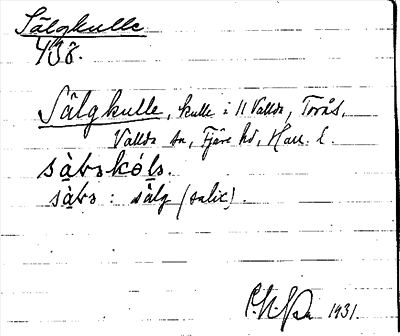 Sälgkulle
438.
Sälgkulle, kulle i 11 Vallda, Torås,
Vallda sn, Fjäre hd, Hall. l.
: sälg (salix).
1931.